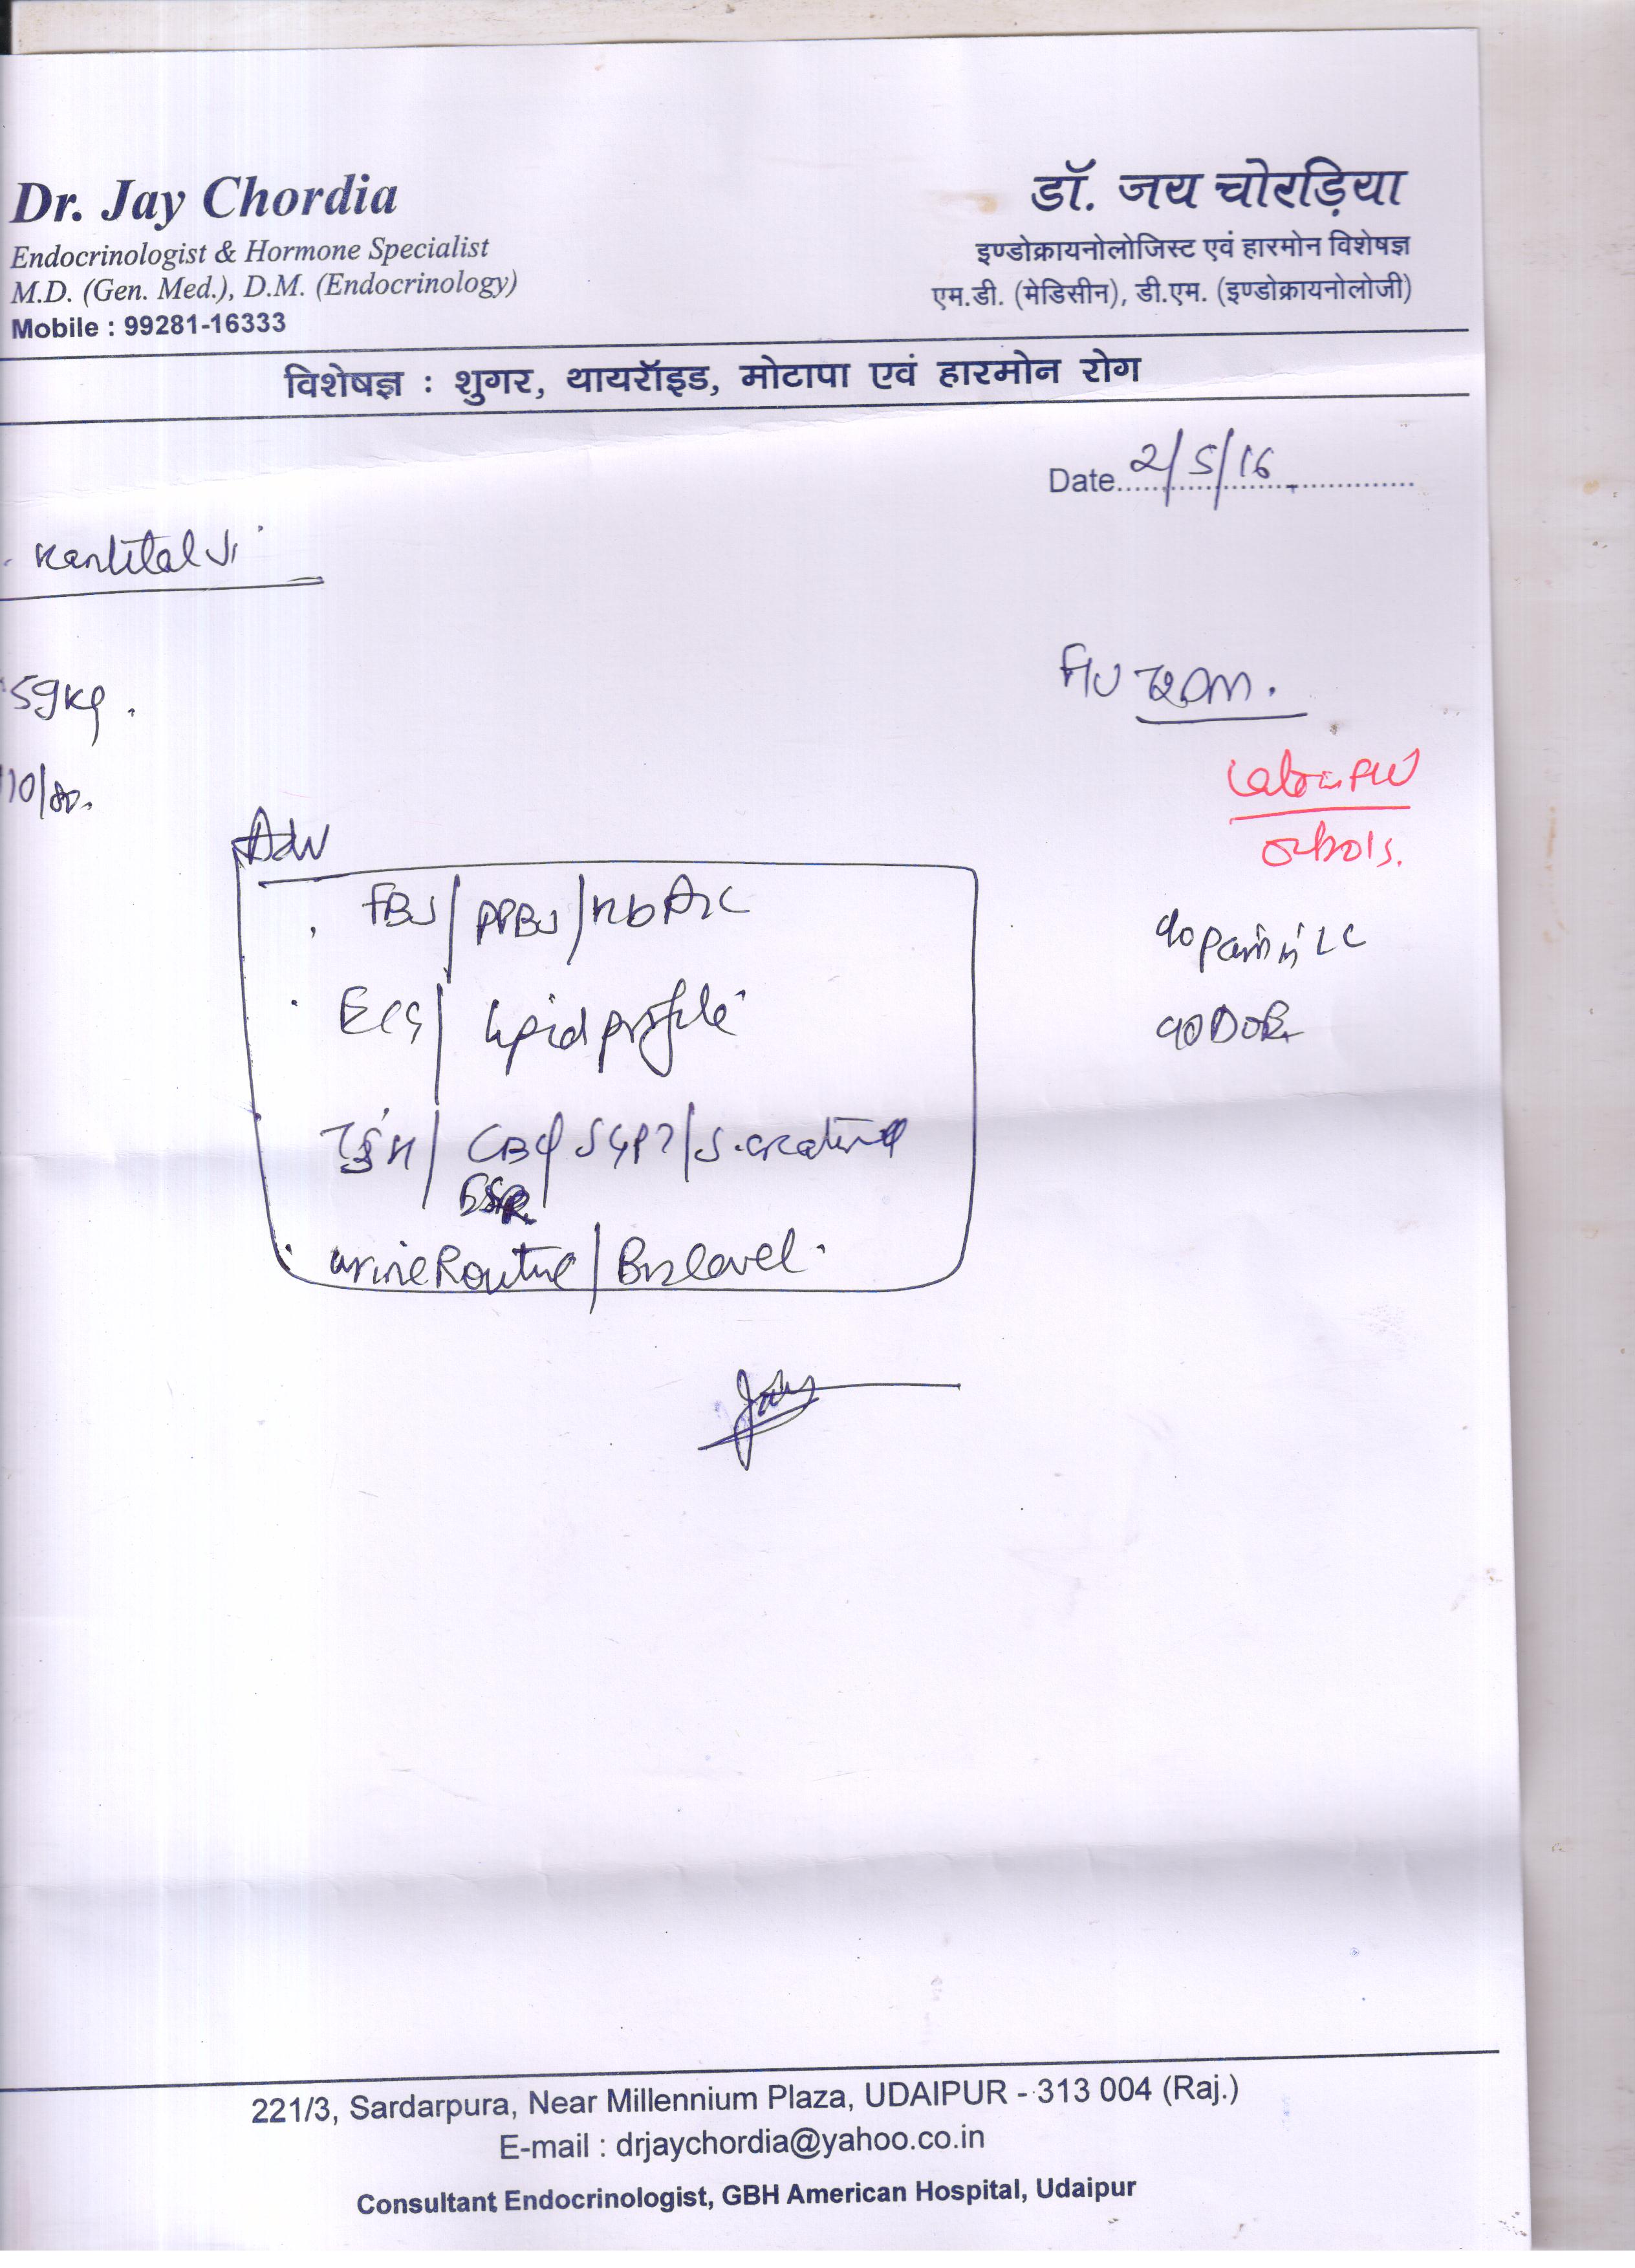 Dr. Jay Chordia
Endocrinologist & Hormone Specialist
M.D. (Gen. Med.), D.M. (Endocrinology)
Mobile : 99281-16333
डॉ. जय चोरड़िया
इण्डोक्रायनोलोजिस्ट एवं हारमोन विशेषज्ञ
एम.डी. (मेडिसीन), डी.एम. (इण्डोक्रायनोलोजी)
विशेषज्ञ : शुगर, थायरॉइड, मोटापा एवं हारमोन रोग
Date 2/5/16
Kantilal Ji
59kg.
10/80.
T2DM.
Adv
FBS / PPBS / HbA1c
ECG / Lipid profile
CBC / SGPT / S. creatinine
ESR
urine Routine / B12 level.
c/o pain in LC
c/o DOE
221/3, Sardarpura, Near Millennium Plaza, UDAIPUR - 313 004 (Raj.)
E-mail : drjaychordia@yahoo.co.in
Consultant Endocrinologist, GBH American Hospital, Udaipur